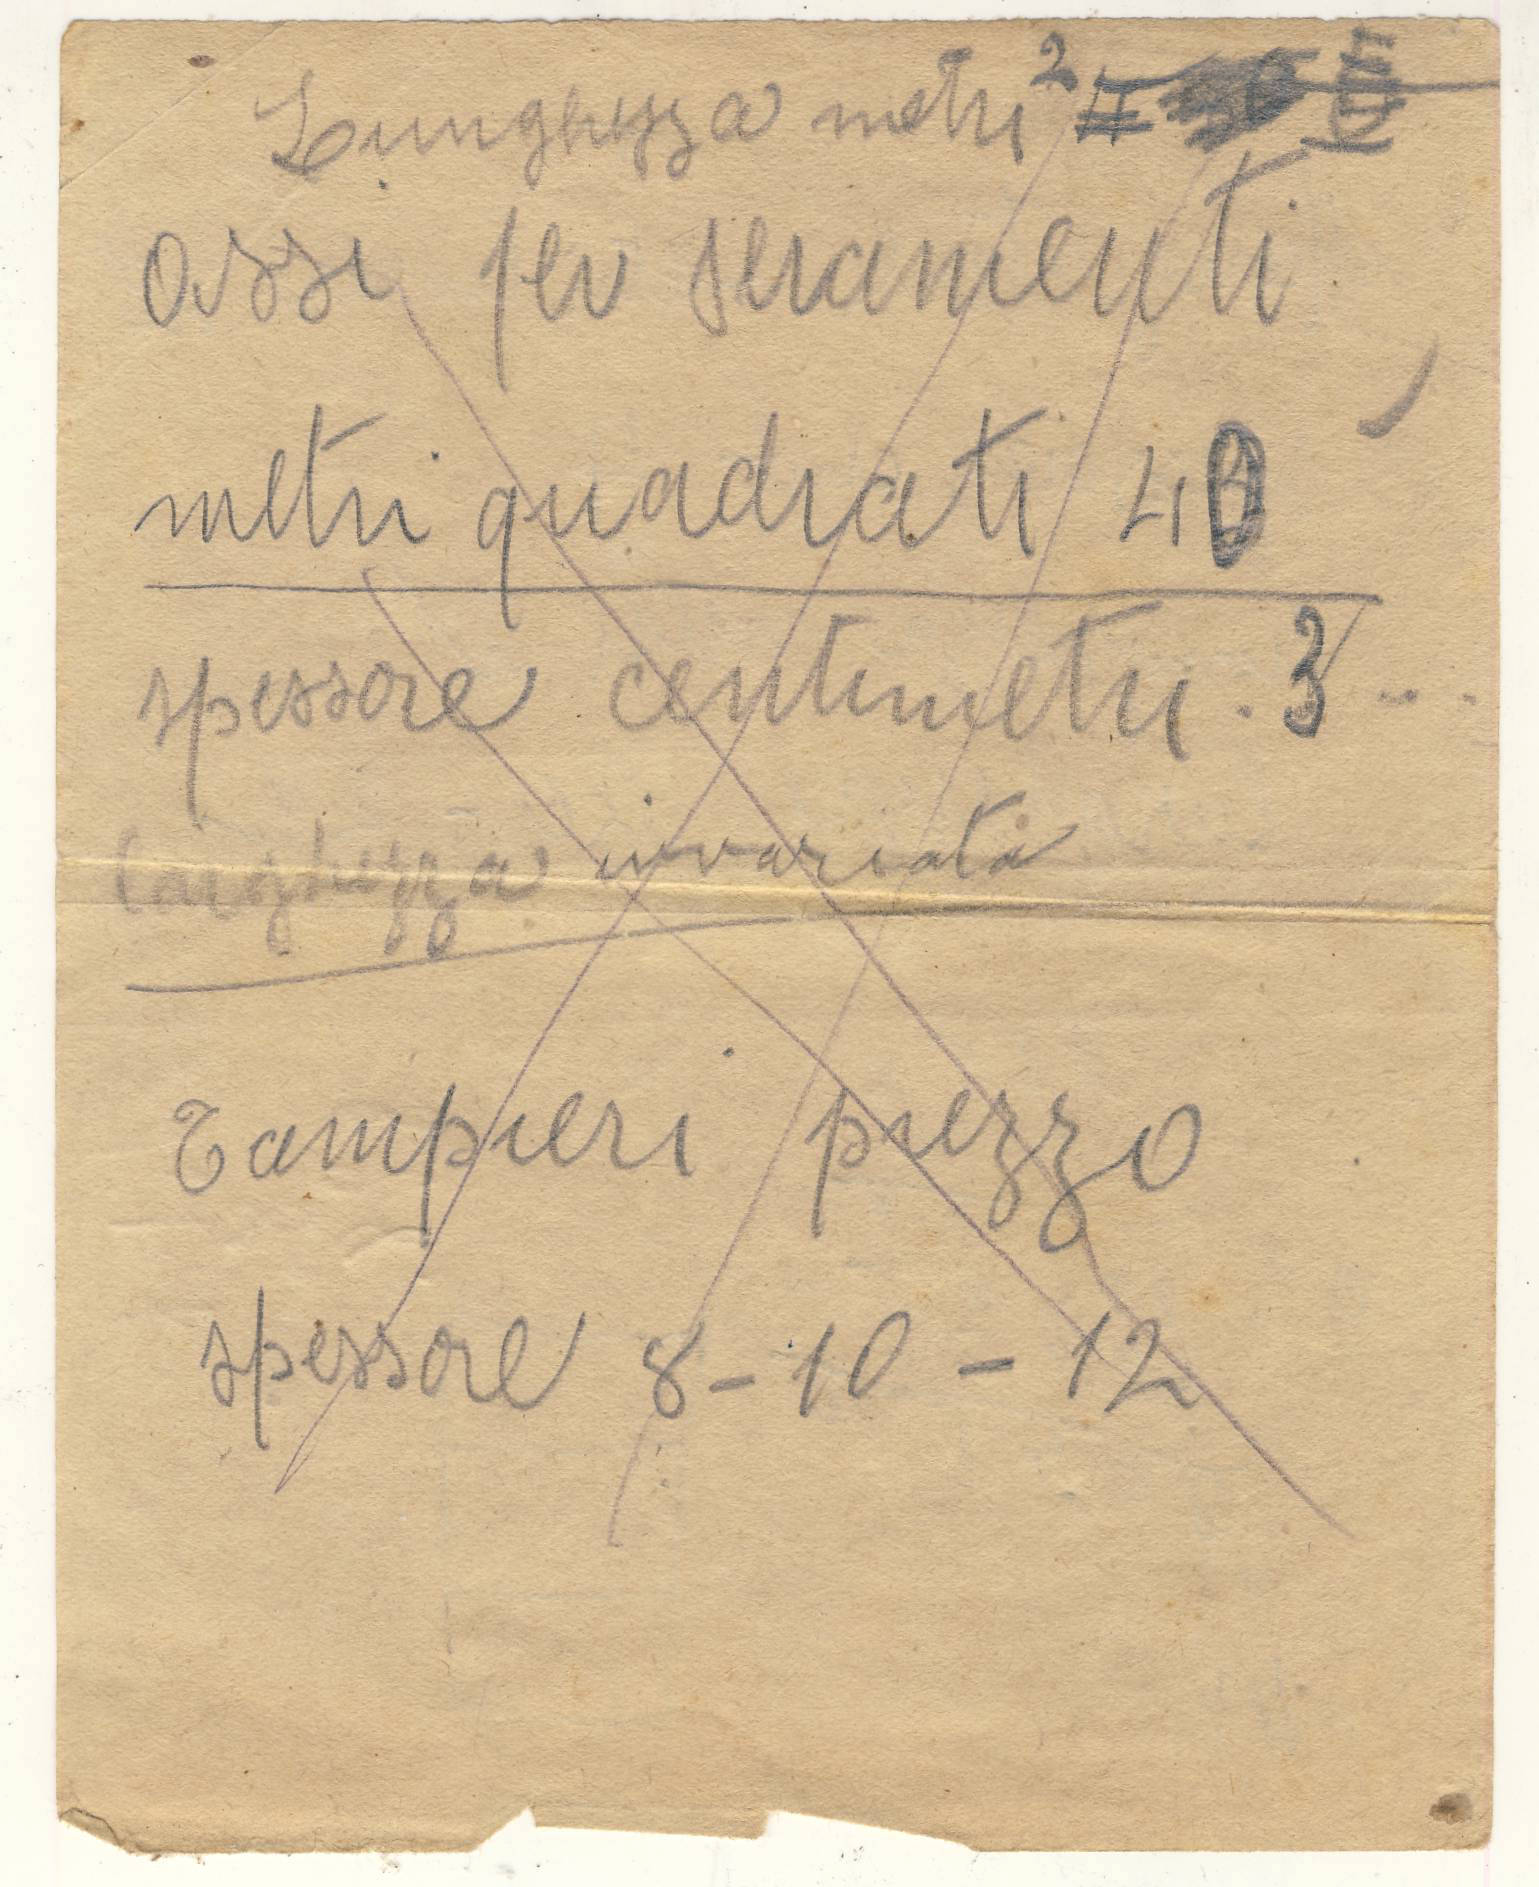 Lunghezza metri 2
assi per seramenti
metri quadrati 40
spessore centimetri . 3 - . .
larghezza invariata
Tampieri piezzo
spessore 8 - 10 - 12